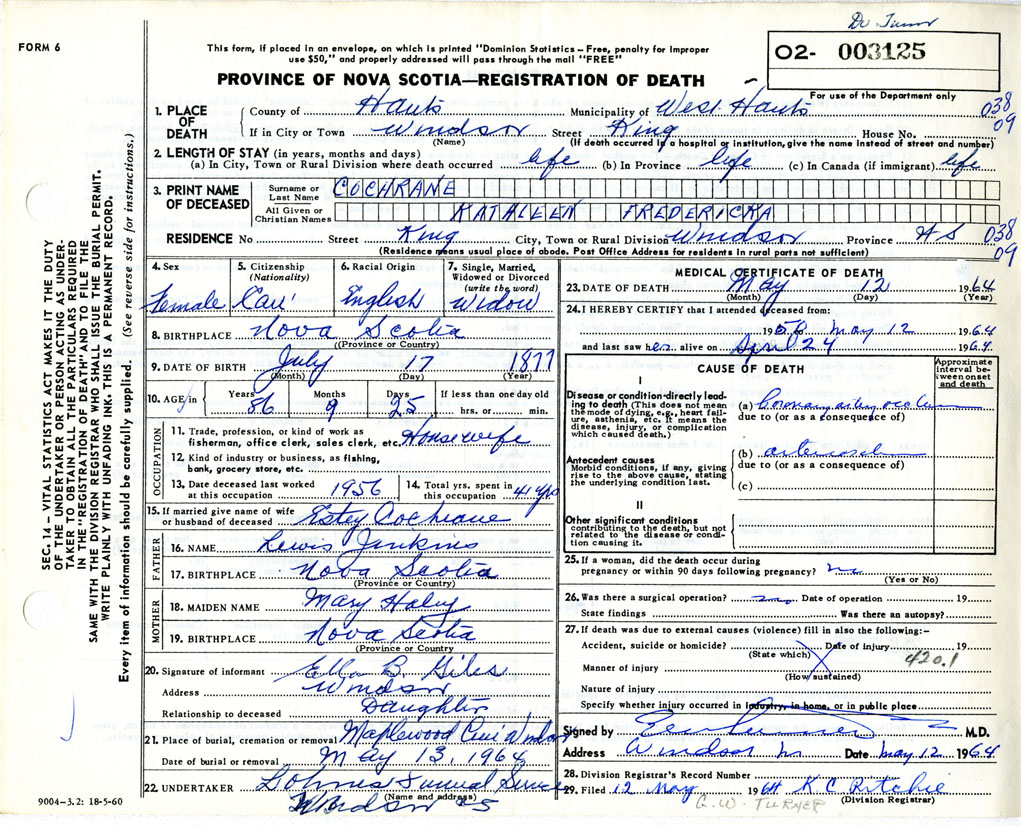 Dr. Turner
FORM 6
This form, if placed in an envelope, on which is printed "Dominion Statistics – Free, penalty for improper
use $50," and properly addressed will pass through the mail "FREE"
O2- 003125
PROVINCE OF NOVA SCOTIA—REGISTRATION OF DEATH
For use of the Department only
038
09
1. PLACE OF DEATH
County of Hants Municipality of West Hants
If in City or Town Windsor Street King House No.
(Name) (If death occurred in a hospital or institution, give the name instead of street and number)
2. LENGTH OF STAY (in years, months and days)
(a) In City, Town or Rural Division where death occurred life (b) In Province life (c) In Canada (if immigrant) life
3. PRINT NAME OF DECEASED
Surname or Last Name COCHRANE
All Given or Christian Names KATHLEEN FREDERICKA
RESIDENCE No Street King City, Town or Rural Division Windsor Province NS 038
09
(Residence means usual place of abode. Post Office Address for residents in rural parts not sufficient)
4. Sex Female
5. Citizenship (Nationality) Can
6. Racial Origin English
7. Single, Married, Widowed or Divorced (write the word) Widow
8. BIRTHPLACE Nova Scotia
(Province or Country)
9. DATE OF BIRTH July 17 1877
(Month) (Day) (Year)
10. AGE in Years 86 Months 9 Days 25 If less than one day old
hrs. or min.
OCCUPATION
11. Trade, profession, or kind of work as
fisherman, office clerk, sales clerk, etc. Housewife
12. Kind of industry or business, as fishing,
bank, grocery store, etc.
13. Date deceased last worked at this occupation 1956 14. Total yrs. spent in this occupation 41 yrs
15. If married give name of wife
or husband of deceased Estey Cochrane
FATHER
16. NAME Lewis Jenkins
17. BIRTHPLACE Nova Scotia
(Province or Country)
MOTHER
18. MAIDEN NAME Mary Haley
19. BIRTHPLACE Nova Scotia
(Province or Country)
20. Signature of informant Ella B. Giles
Address Windsor
Relationship to deceased Daughter
21. Place of burial, cremation or removal Maplewood Cem Windsor
Date of burial or removal May 13, 1964
22. UNDERTAKER Lohnes Funeral Service
(Name and address)
Windsor NS
MEDICAL CERTIFICATE OF DEATH
23. DATE OF DEATH May 12 1964
(Month) (Day) (Year)
24. I HEREBY CERTIFY that I attended deceased from:
1958 May 12 1964
and last saw her alive on April 24 1964
CAUSE OF DEATH
Approximate interval between onset and death
I
Disease or condition directly leading to death (This does not mean
the mode of dying, e.g., heart failure, asthenia, etc. It means the
disease, injury, or complication
which caused death.)
(a) Coronary artery occlusion
due to (or as a consequence of)
Antecedent causes
Morbid conditions, if any, giving
rise to the above cause, stating
the underlying condition last.
(b)
due to (or as a consequence of)
(c)
II
Other significant conditions
contributing to the death, but not
related to the disease or condition causing it.
25. If a woman, did the death occur during
pregnancy or within 90 days following pregnancy? no
(Yes or No)
26. Was there a surgical operation? no Date of operation 19
State findings Was there an autopsy?
27. If death was due to external causes (violence) fill in also the following:–
Accident, suicide or homicide? Date of injury 19
(State which) 420.1
Manner of injury
(How sustained)
Nature of injury
Specify whether injury occurred in industry, in home, or in public place
Signed by M.D.
Address Windsor Date May 12 1964
28. Division Registrar's Record Number
29. Filed 12 May 1964 K C Ritchie
(Division Registrar)
G. W. TURNER
SEC. 14 – VITAL STATISTICS ACT MAKES IT THE DUTY
OF THE UNDERTAKER OR PERSON ACTING AS UNDER-
TAKER TO OBTAIN ALL THE PARTICULARS REQUIRED
IN THE "REGISTRATION OF DEATH" AND TO FILE THE
SAME WITH THE DIVISION REGISTRAR WHO SHALL ISSUE THE BURIAL PERMIT.
WRITE PLAINLY WITH UNFADING INK. THIS IS A PERMANENT RECORD.
Every item of information should be carefully supplied. (See reverse side for instructions.)
9004–3.2: 18-5-60